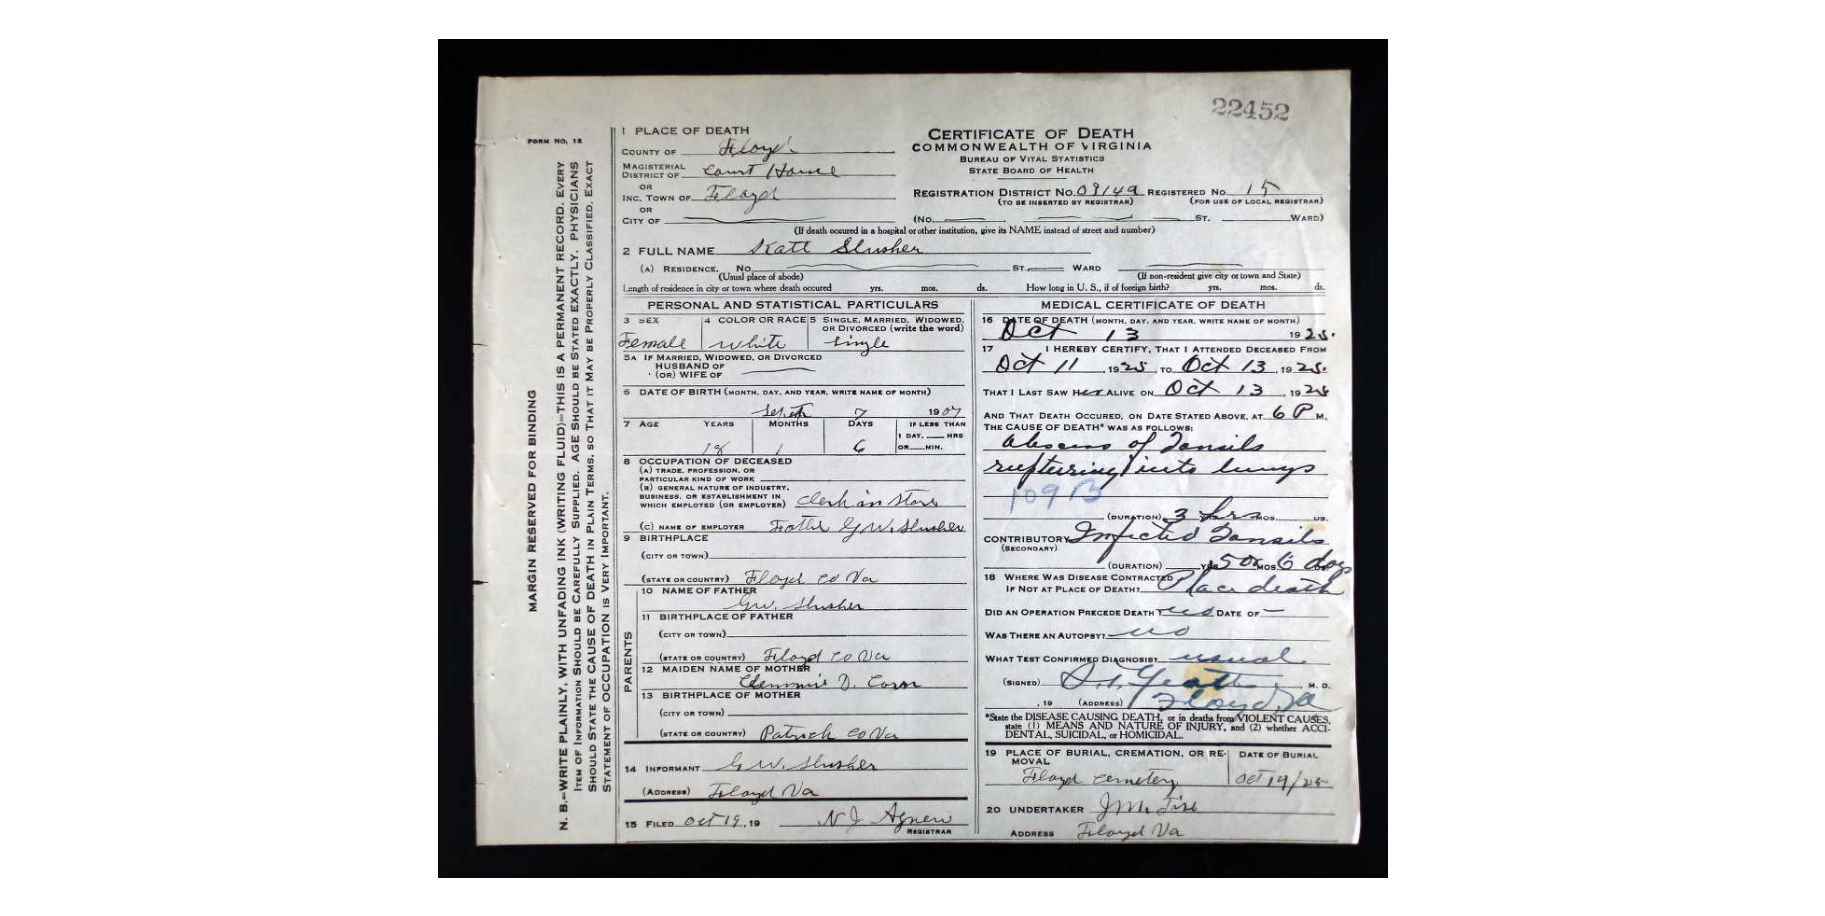 22452
FORM NO. 12
MARGIN RESERVED FOR BINDING
N. B.—WRITE PLAINLY, WITH UNFADING INK (WRITING FLUID)—THIS IS A PERMANENT RECORD. EVERY
ITEM OF INFORMATION SHOULD BE CAREFULLY SUPPLIED. AGE SHOULD BE STATED EXACTLY. PHYSICIANS
SHOULD STATE THE CAUSE OF DEATH IN PLAIN TERMS, SO THAT IT MAY BE PROPERLY CLASSIFIED. EXACT
STATEMENT OF OCCUPATION IS VERY IMPORTANT.
1 PLACE OF DEATH
COUNTY OF Floyd
MAGISTERIAL DISTRICT OF Court House
OR
INC. TOWN OF Floyd
OR
CITY OF
CERTIFICATE OF DEATH
COMMONWEALTH OF VIRGINIA
BUREAU OF VITAL STATISTICS
STATE BOARD OF HEALTH
REGISTRATION DISTRICT NO. 0814a REGISTERED NO. 15
(TO BE INSERTED BY REGISTRAR) (FOR USE OF LOCAL REGISTRAR)
(NO. ST. WARD)
(If death occured in a hospital or other institution, give its NAME instead of street and number)
2 FULL NAME Katt Slusher
(A) RESIDENCE, NO. ST. WARD
(Usual place of abode) (If non-resident give city or town and State)
Length of residence in city or town where death occured yrs. mos. ds. How long in U. S., if of foreign birth? yrs. mos. ds.
PERSONAL AND STATISTICAL PARTICULARS
3 SEX 4 COLOR OR RACE 5 SINGLE, MARRIED, WIDOWED, OR DIVORCED (write the word)
Female white single
5A IF MARRIED, WIDOWED, OR DIVORCED
HUSBAND OF
(OR) WIFE OF
6 DATE OF BIRTH (MONTH, DAY, AND YEAR, WRITE NAME OF MONTH)
Sept 7 1907
7 AGE YEARS MONTHS DAYS IF LESS THAN
1 DAY, HRS
OR MIN.
18 1 6
8 OCCUPATION OF DECEASED
(A) TRADE, PROFESSION, OR
PARTICULAR KIND OF WORK
(B) GENERAL NATURE OF INDUSTRY,
BUSINESS, OR ESTABLISHMENT IN
WHICH EMPLOYED (OR EMPLOYER) Clerk in Store
(C) NAME OF EMPLOYER Father G W. Slusher
9 BIRTHPLACE
(CITY OR TOWN)
(STATE OR COUNTRY) Floyd Co Va
PARENTS
10 NAME OF FATHER
G W. Slusher
11 BIRTHPLACE OF FATHER
(CITY OR TOWN)
(STATE OR COUNTRY) Floyd Co Va
12 MAIDEN NAME OF MOTHER
Clemmie D.
13 BIRTHPLACE OF MOTHER
(CITY OR TOWN)
(STATE OR COUNTRY) Patrick Co Va
14 INFORMANT G W. Slusher
(ADDRESS) Floyd Va
15 FILED Oct 19, 19 N J Agnew
REGISTRAR
MEDICAL CERTIFICATE OF DEATH
16 DATE OF DEATH (MONTH, DAY, AND YEAR, WRITE NAME OF MONTH)
Oct 13 1925.
17 I HEREBY CERTIFY, THAT I ATTENDED DECEASED FROM
Oct 11, 1925, TO Oct 13, 1925.
THAT I LAST SAW Her ALIVE ON Oct 13, 1925
AND THAT DEATH OCCURED, ON DATE STATED ABOVE, AT 6 P M.
THE CAUSE OF DEATH* WAS AS FOLLOWS:
Abscess of Tonsils
rupturing into lungs
109B
(DURATION) 3 hrs MOS. DS.
CONTRIBUTORY Infected Tonsils
(SECONDARY)
(DURATION) YRS 5 or MOS. 6 days
18 WHERE WAS DISEASE CONTRACTED
IF NOT AT PLACE OF DEATH? Place death
DID AN OPERATION PRECEDE DEATH no DATE OF —
WAS THERE AN AUTOPSY? no
WHAT TEST CONFIRMED DIAGNOSIS? usual
(SIGNED) M. D.
, 19 (ADDRESS) Floyd Va
*State the DISEASE CAUSING DEATH, or in deaths from VIOLENT CAUSES,
state (1) MEANS AND NATURE OF INJURY, and (2) whether ACCI-
DENTAL, SUICIDAL, or HOMICIDAL.
19 PLACE OF BURIAL, CREMATION, OR RE-MOVAL DATE OF BURIAL
Floyd Cemetery Oct 14/25
20 UNDERTAKER
ADDRESS Floyd Va